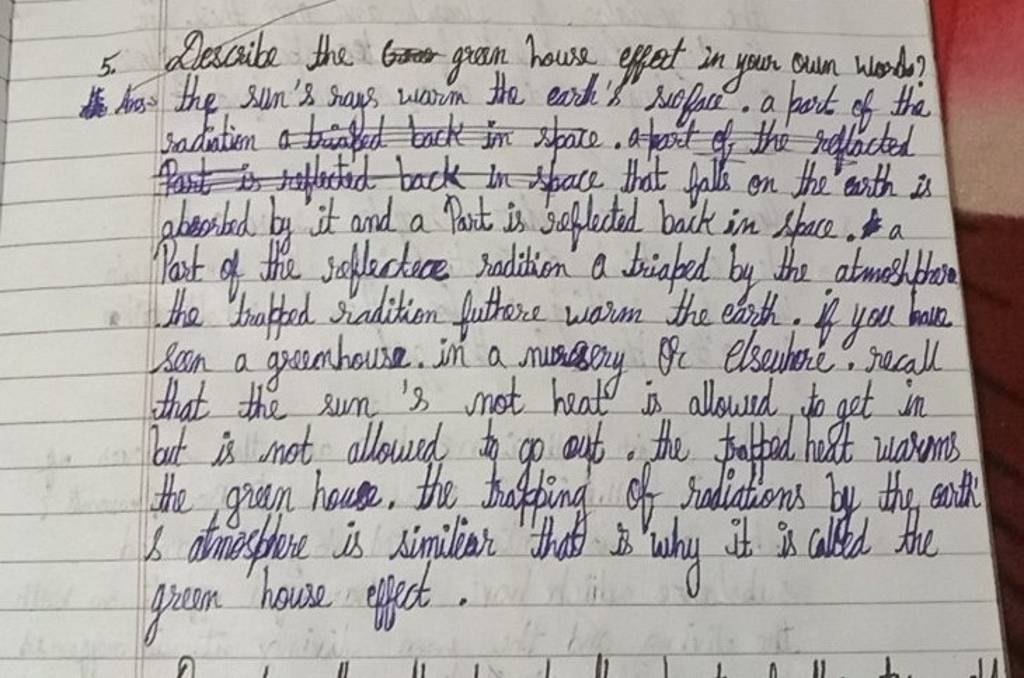 5. Describe the green house effect in your own words?
Ans→ the sun's rays warm the earth's surface. a part of the
radiation a triaped back in space. a part of the reflacted
Part is reflected back in space that falls on the earth is
absorbed by it and a Part is reflected back in space. a
Part of the reflectece radition a triaped by the atmoshphere
the trapped radition futhere warm the earth. if you have
seen a greenhouse. in a nursery or elsewhere. recall
that the sun 's not heat is allowed to get in
but is not allowed to go out. the trapped heat warms
the green house. the trapping of radiations by the earth'
s atmosphere is similiar that is why it is called the
green house effect.